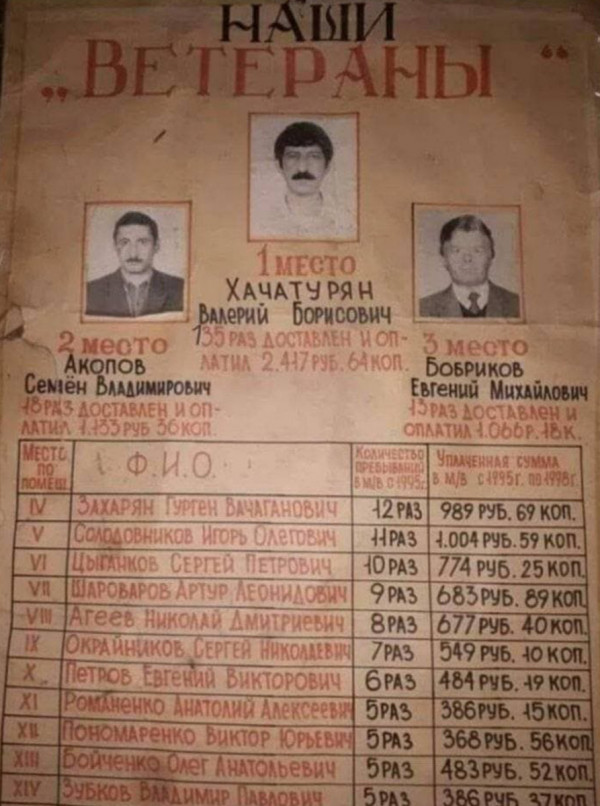 НАШИ
„ВЕТЕРАНЫ“
1 МЕСТО
ХАЧАТУРЯН
ВАЛЕРИЙ БОРИСОВИЧ
135 РАЗ ДОСТАВЛЕН И ОП-
ЛАТИЛ 2.417 РУБ. 64 КОП.
2 место
АКОПОВ
СЕМЁН ВЛАДИМИРОВИЧ
18 РАЗ ДОСТАВЛЕН И ОП-
ЛАТИЛ 1.133 РУБ 36 КОП.
3 место
БОБРИКОВ
ЕВГЕНИЙ МИХАЙЛОВИЧ
13 РАЗ ДОСТАВЛЕН И
ОПЛАТИЛ 1.066 Р. 18 К.
МЕСТО ПО ПОМЕЩ. Ф.И.О. КОЛИЧЕСТВО ПРЕБЫВАНИЙ В М/В С 1995г. УПЛАЧЕННАЯ СУММА В М/В С 1995г. ПО 1998г.
IV ЗАХАРЯН ГУРГЕН ВАЧАГАНОВИЧ 12 РАЗ 989 РУБ. 69 КОП.
V СОЛОДОВНИКОВ ИГОРЬ ОЛЕГОВИЧ 11 РАЗ 1.004 РУБ. 59 КОП.
VI ЦЫГАНКОВ СЕРГЕЙ ПЕТРОВИЧ 10 РАЗ 774 РУБ. 25 КОП.
VII ШАРОВАРОВ АРТУР ЛЕОНИДОВИЧ 9 РАЗ 683 РУБ. 89 КОП.
VIII АГЕЕВ НИКОЛАЙ ДМИТРИЕВИЧ 8 РАЗ 677 РУБ. 40 КОП.
IX ОКРАЙНИКОВ СЕРГЕЙ НИКОЛАЕВИЧ 7 РАЗ 549 РУБ. 10 КОП.
X ПЕТРОВ ЕВГЕНИЙ ВИКТОРОВИЧ 6 РАЗ 484 РУБ. 19 КОП.
XI РОМАНЕНКО АНАТОЛИЙ АЛЕКСЕЕВИЧ 5 РАЗ 386 РУБ. 15 КОП.
XII ПОНОМАРЕНКО ВИКТОР ЮРЬЕВИЧ 5 РАЗ 368 РУБ. 56 КОП.
XIII БОЙЧЕНКО ОЛЕГ АНАТОЛЬЕВИЧ 5 РАЗ 483 РУБ. 52 КОП.
XIV ЗУБКОВ ВЛАДИМИР ПАВЛОВИЧ 5 РАЗ 386 РУБ. 37 КОП.